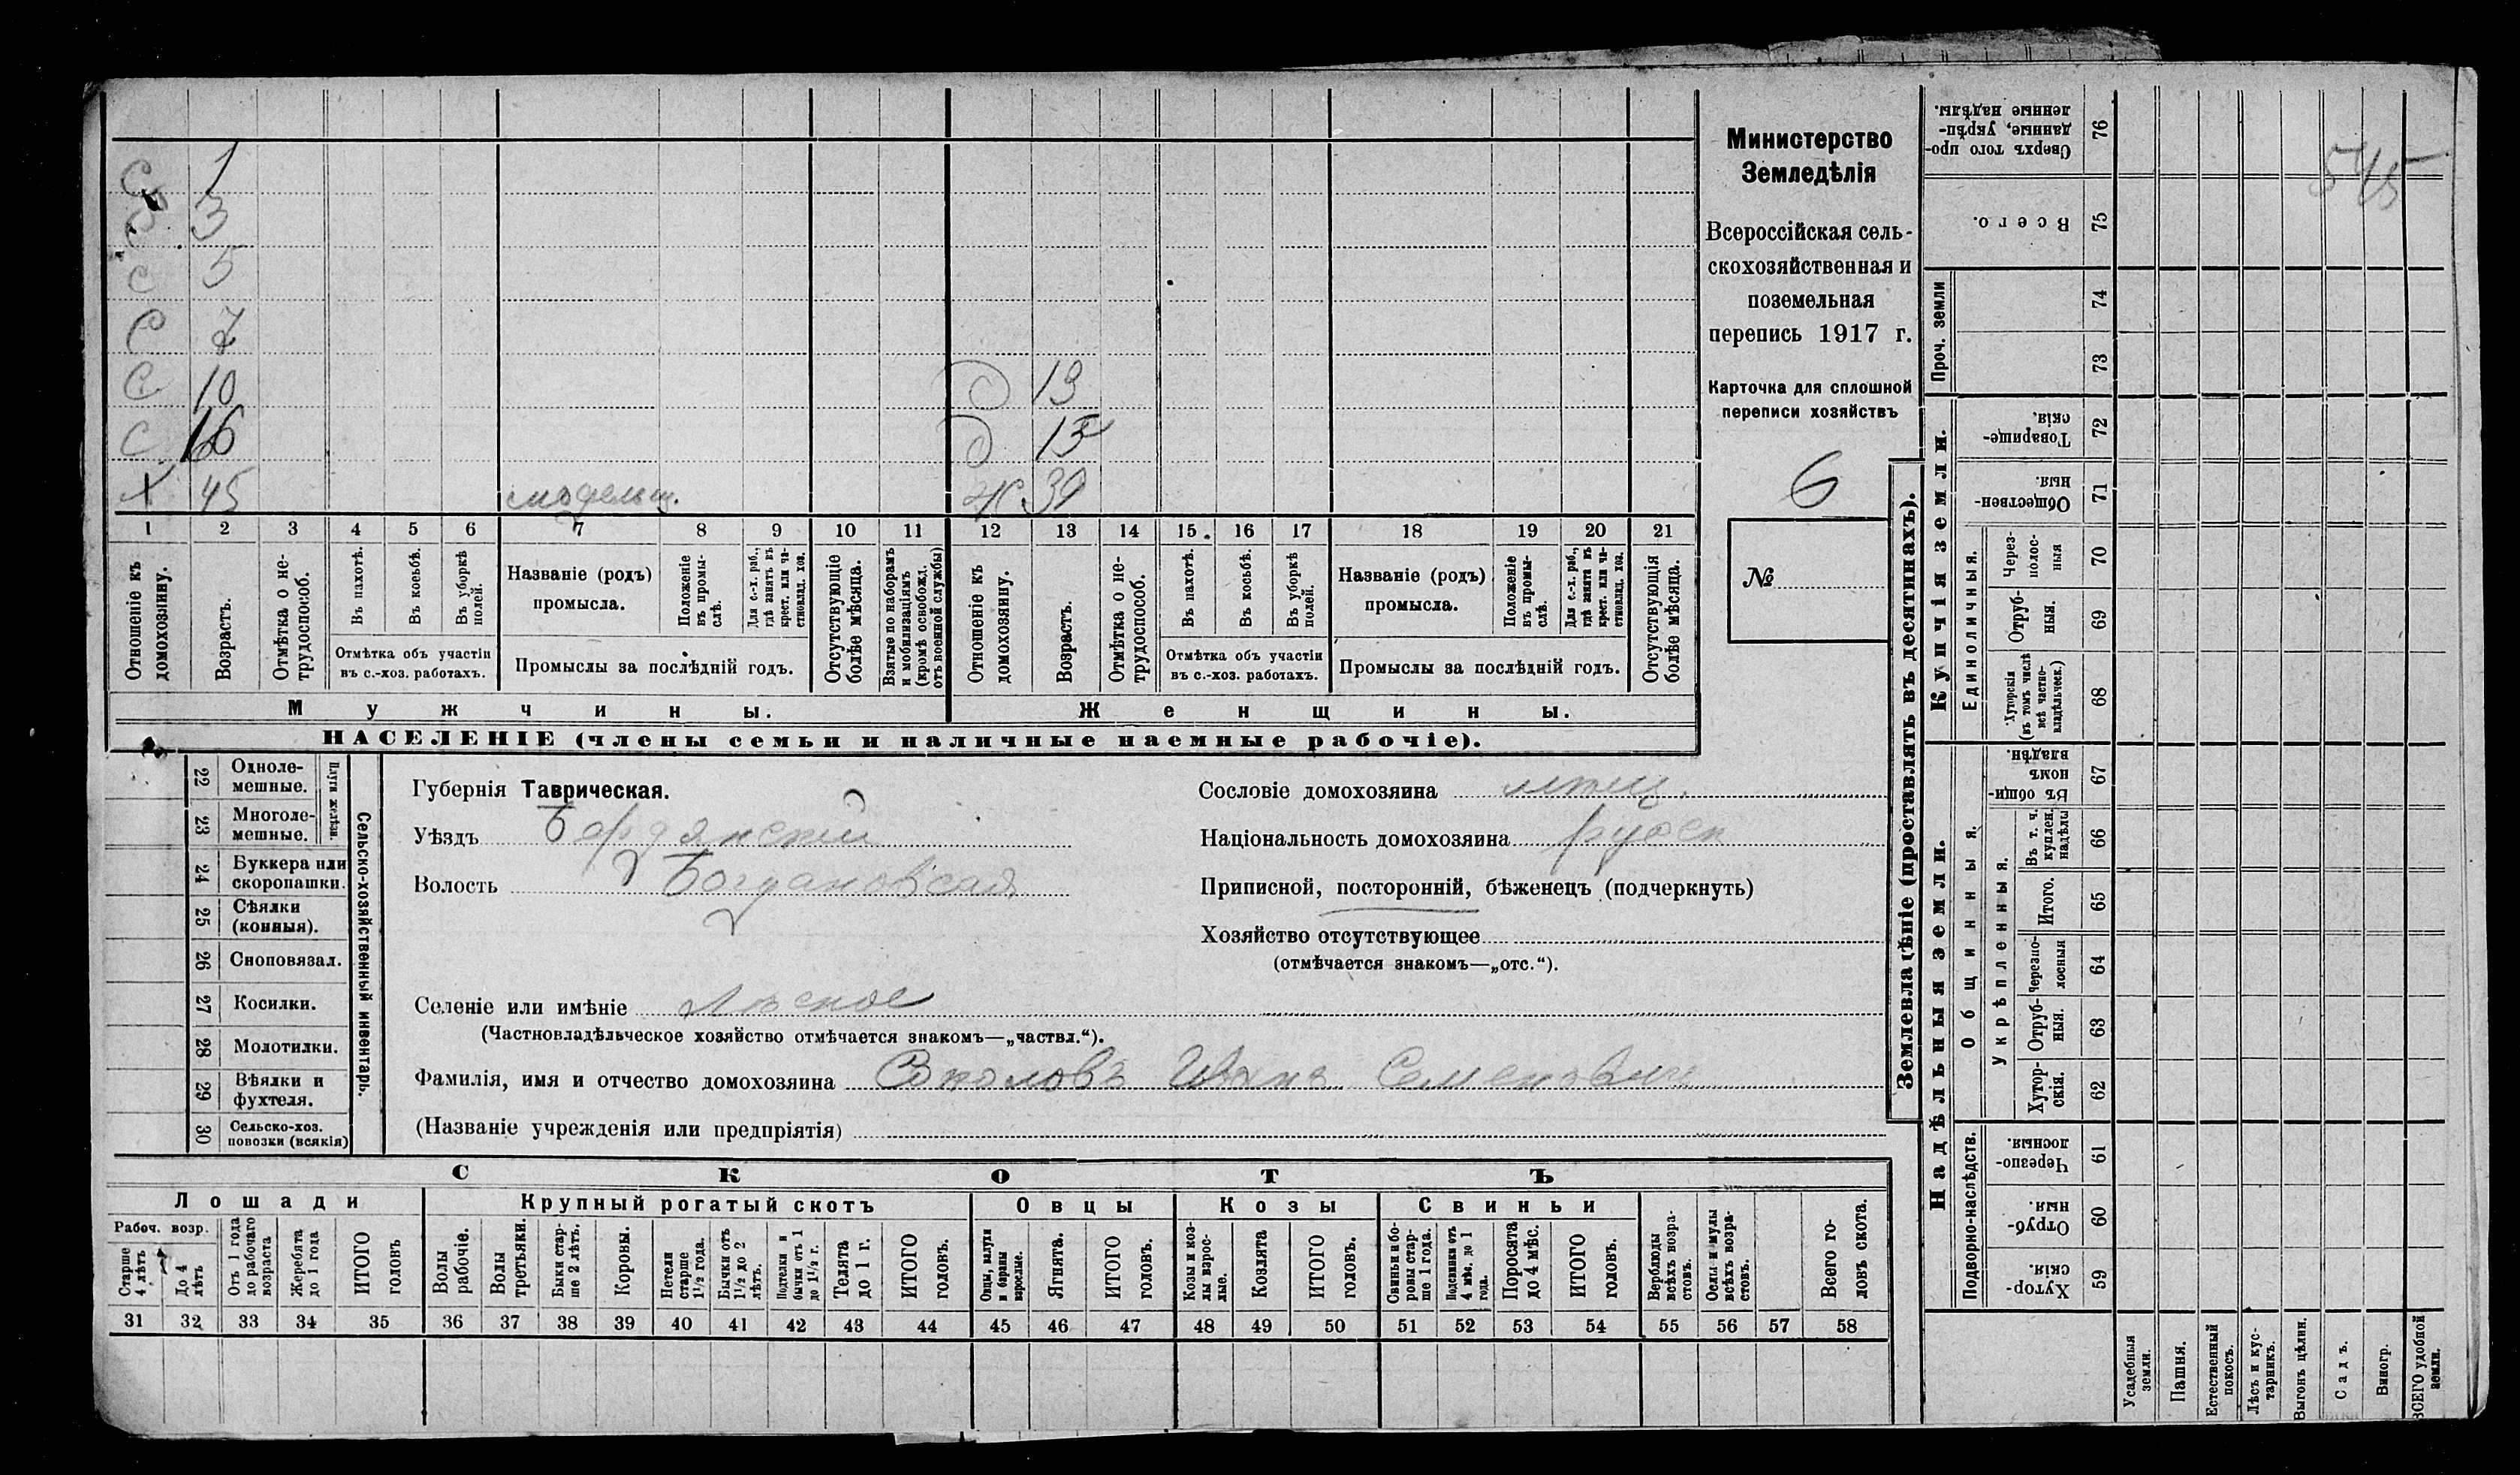 С 1
С 3
С 5
С 7
С 10 Д 13
С 16 Д 15
Х 45 модельщ. Ж 39
1 2 3 4 5 6 7 8 9 10 11 12 13 14 15 16 17 18 19 20 21
Отношеніе къ домохозяину.
Возрастъ.
Отмѣтка о не-трудоспособ.
Въ пахотѣ.
Въ косьбѣ.
Въ уборкѣ полей.
Отмѣтка объ участіи
въ с.-хоз. работахъ.
Названіе (родъ)
промысла.
Положеніе въ промы-слѣ.
Для с.-х. раб., гдѣ занятъ въ крест. или ча-стновлад. хоз.
Промыслы за послѣдній годъ.
Отсутствующіе болѣе мѣсяца.
Взятые по наборамъ и мобилизаціямъ (кромѣ освобожд. отъ военной службы)
Отношеніе къ домохозяину.
Возрастъ.
Отмѣтка о не-трудоспособ.
Въ пахотѣ.
Въ косьбѣ.
Въ уборкѣ полей.
Отмѣтка объ участіи
въ с.-хоз. работахъ.
Названіе (родъ)
промысла.
Положеніе въ промы-слѣ.
Для с.-х. раб., гдѣ занята въ крест. или ча-стновлад. хоз.
Промыслы за послѣдній годъ.
Отсутствующія болѣе мѣсяца.
Мужчины.
Женщины.
НАСЕЛЕНІЕ (члены семьи и наличные наемные рабочіе).
Министерство
Земледѣлія
Всероссійская сель-
скохозяйственная и
поземельная
перепись 1917 г.
Карточка для сплошной
переписи хозяйствъ
6
№
22 Одноле-мешные.
23 Многоле-мешные.
Плуги желѣзн.
24 Буккера или скоропашки.
25 Сѣялки (конныя).
26 Сноповязал.
27 Косилки.
28 Молотилки.
29 Вѣялки и фухтеля.
30 Сельско-хоз. повозки (всякія)
Сельско-хозяйственный инвентарь.
Губернія Таврическая.
Уѣздъ Бердянскій
Волость Богдановская
Сословіе домохозяина мѣщ.
Національность домохозяина русск
Приписной, посторонній, бѣженецъ (подчеркнуть)
Хозяйство отсутствующее
(отмѣчается знакомъ—„отс.“).
Селеніе или имѣніе Лѣсное
(Частновладѣльческое хозяйство отмѣчается знакомъ—„частвл.“).
Фамилія, имя и отчество домохозяина Соколовъ Иванъ Семеновичъ
(Названіе учрежденія или предпріятія)
СКОТЪ
Лошади
Крупный рогатый скотъ
Овцы
Козы
Свиньи
Рабоч. возр.
Старше 4 лѣтъ
До 4 лѣтъ
Отъ 1 года до рабочаго возраста
Жеребята до 1 года
ИТОГО головъ
Волы рабочіе.
Волы третьяки.
Быки стар-ше 2 лѣтъ.
Коровы.
Нетели старше 1½ года.
Бычки отъ 1½ до 2 лѣтъ.
Подтелки и бычки отъ 1 до 1½ г.
Телята до 1 г.
ИТОГО головъ.
Овцы, валухи и бараны взрослые.
Ягнята.
ИТОГО головъ.
Козы и коз-лы взрос-лые.
Козлята
ИТОГО головъ.
Свиньи и бо-ровы стар-ше 1 года.
Подсвинки отъ 4 мѣс. до 1 года.
Поросята до 4 мѣс.
ИТОГО головъ.
Верблюды всѣхъ возра-стовъ.
Ослы и мулы всѣхъ возра-стовъ.
Всего го-ловъ скота.
31 32 33 34 35 36 37 38 39 40 41 42 43 44 45 46 47 48 49 50 51 52 53 54 55 56 57 58
Землевладѣніе (проставлять въ десятинахъ).
Купчія земли.
Надѣльныя земли.
Сверхъ того про-данные, укрѣп-ленные надѣлы. 76
Всего. 75
Проч. земли
74
73
Товарище-скія. 72
Обществен-ныя. 71
Единоличныя.
Через-полос-ныя 70
Отруб-ныя. 69
Хуторскія (въ томъ числѣ всѣ частно-владѣльческ.) 68
Общинныя.
Въ общи-номъ владѣн. 67
Укрѣпленныя.
Въ т. ч. куплен. надѣлы 66
Итого. 65
Черезпо-лосныя 64
Отруб-ныя. 63
Хутор-скія. 62
Подворно-наслѣдств.
Черезпо-лосныя. 61
Отруб-ныя. 60
Хутор-скія. 59
Усадебныя земли.
Пашня.
Естественный покосъ.
Лѣсъ и кус-тарникъ.
Выгонъ цѣлин.
Садъ.
Виногр.
ВСЕГО удобной земли.
545